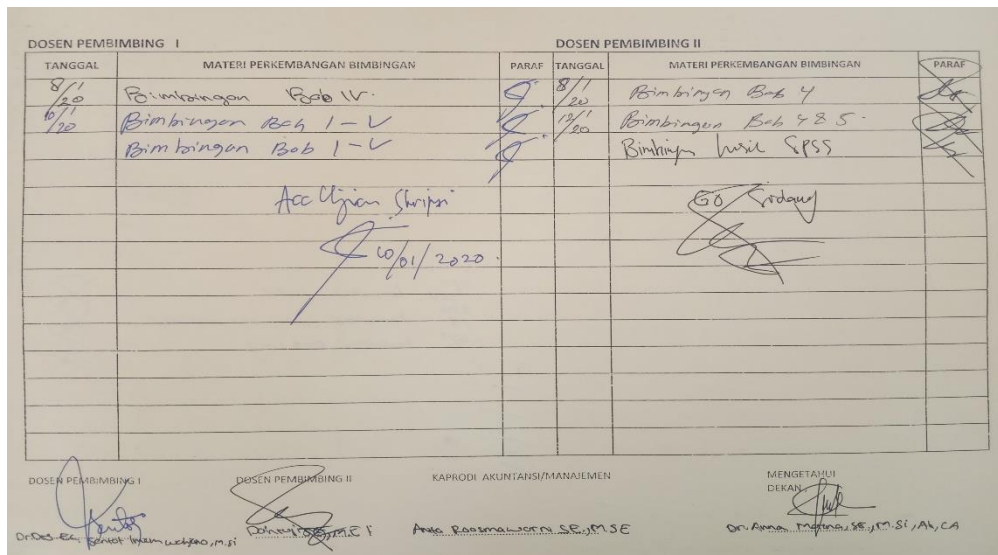 DOSEN PEMBIMBING I
TANGGAL MATERI PERKEMBANGAN BIMBINGAN PARAF
8/1/20 Bimbingan Bab IV.
10/1/20 Bimbingan Bab I-V
Bimbingan Bab I-V
Acc Ujian Skripsi
10/01/2020.
DOSEN PEMBIMBING II
TANGGAL MATERI PERKEMBANGAN BIMBINGAN PARAF
8/1/20 Bimbingan Bab 4
/20 Bimbingan Bab 4 & 5.
Bimbingan hasil SPSS
GO Sidang
DOSEN PEMBIMBING I
Sentot
DOSEN PEMBIMBING II
SE, M.E.I
KAPRODI AKUNTANSI/MANAJEMEN
SE., MSE
MENGETAHUI
DEKAN
Dr. Anna Marina, SE., M.Si, Ak, CA